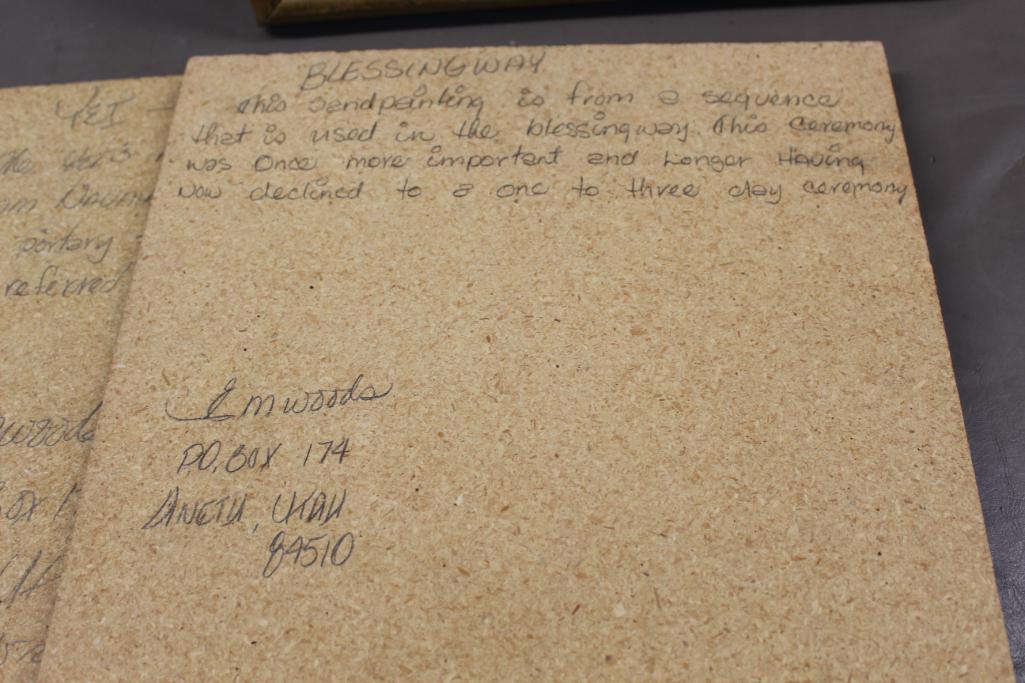 BLESSINGWAY
This sandpainting is from a sequence
that is used in the blessingway. This Ceremony
was Once more important and Longer Having
now declined to a one to three day ceremony
Emwoods
P.O. BOX 174
ANETH, UTAH
84510
YEI
portary
referred
woods